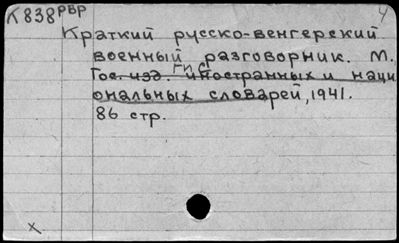 К838 РВР 4
Краткий русско-венгерский
военный разговорник. М.
ГИС
Гос. изд. иностранных и наци
ональных словарей, 1941.
86 стр.
х